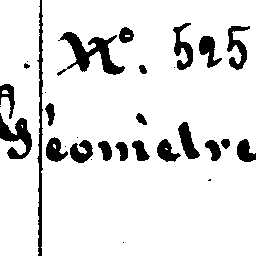 N°. 525
Géomètre